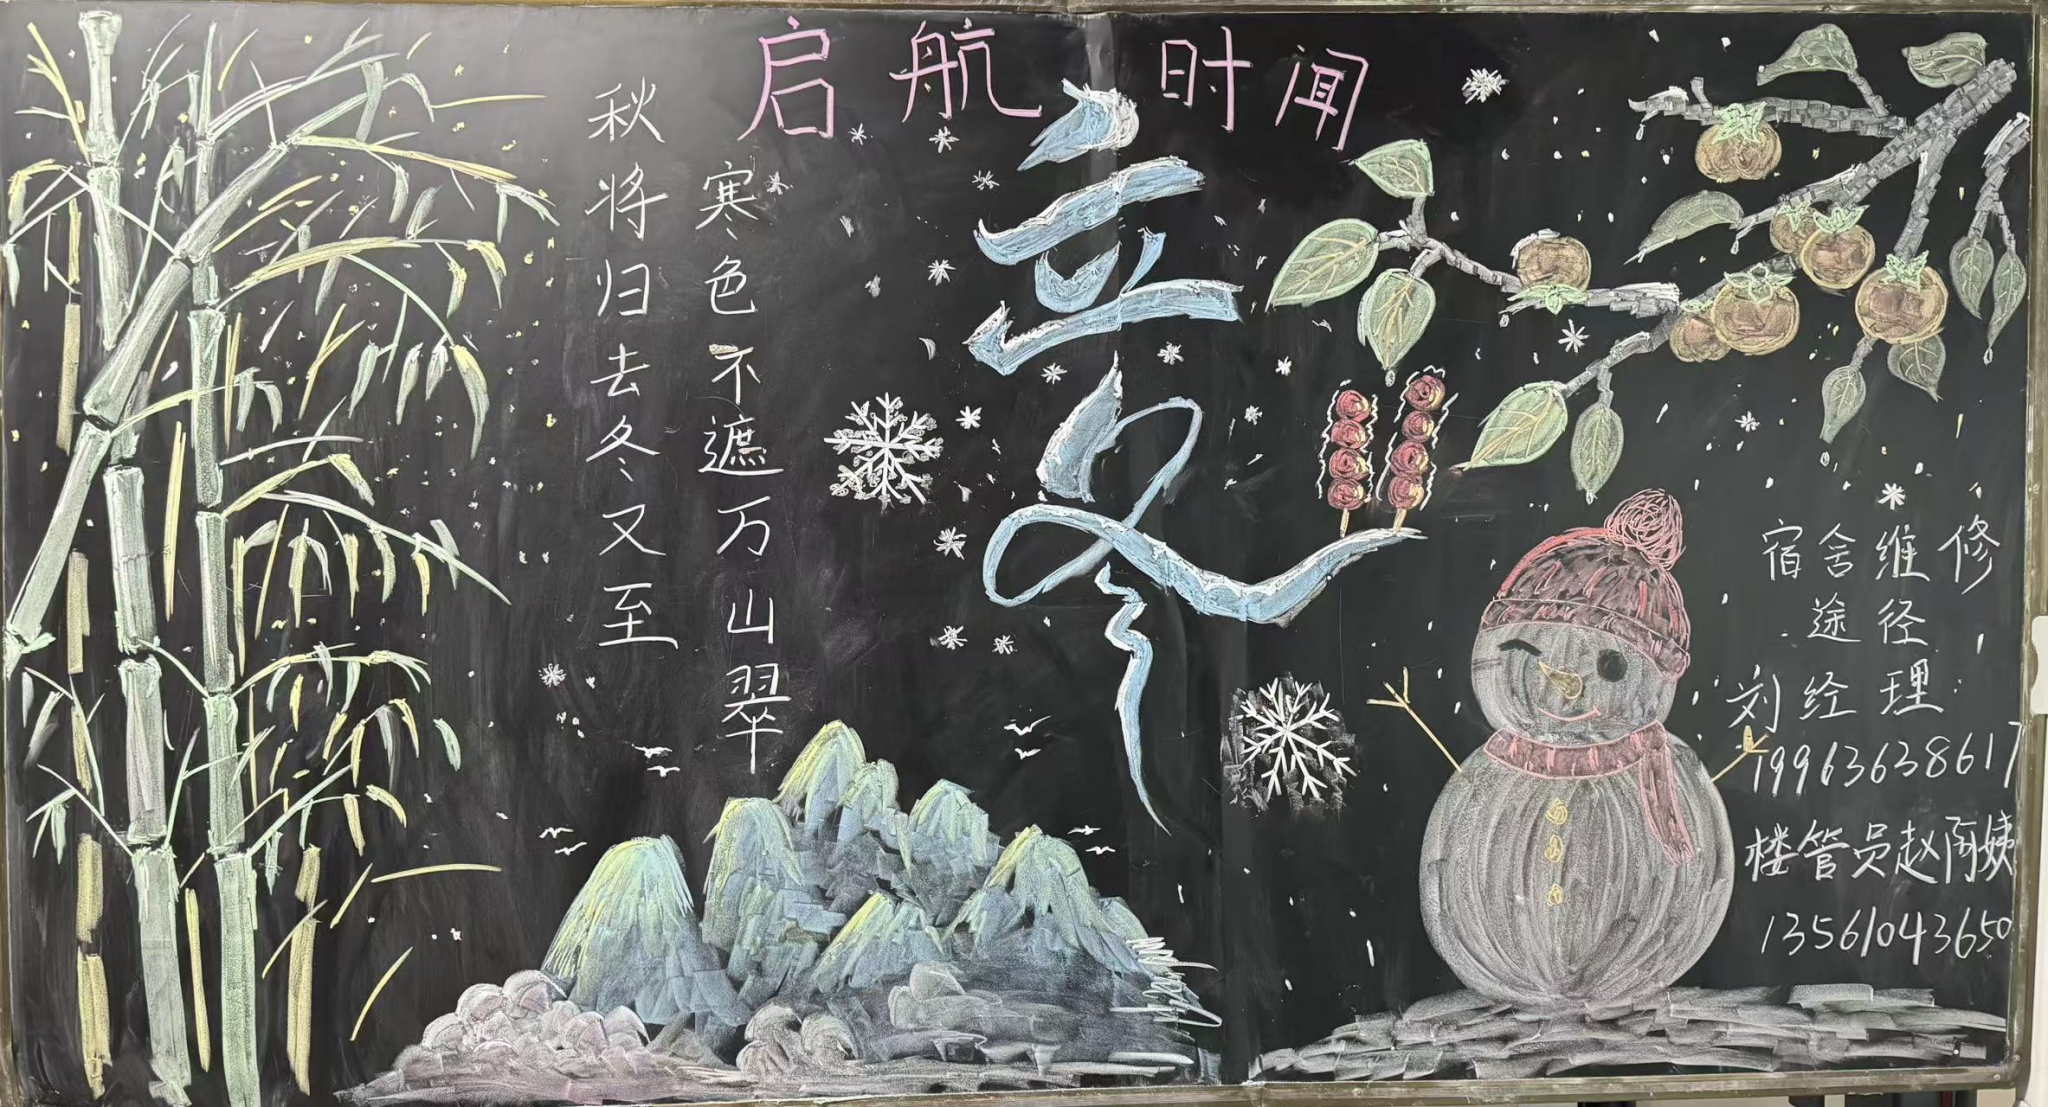 启航时闻
立冬
寒色不遮万山翠
秋将归去冬又至
宿舍维修
途径
刘经理:
19963638617
楼管员赵阿姨
13561043650